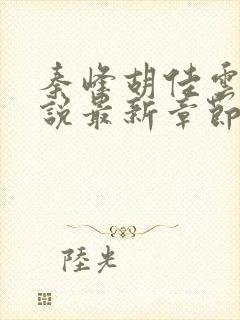 秦峰胡佳雲
說最新章節
陸光